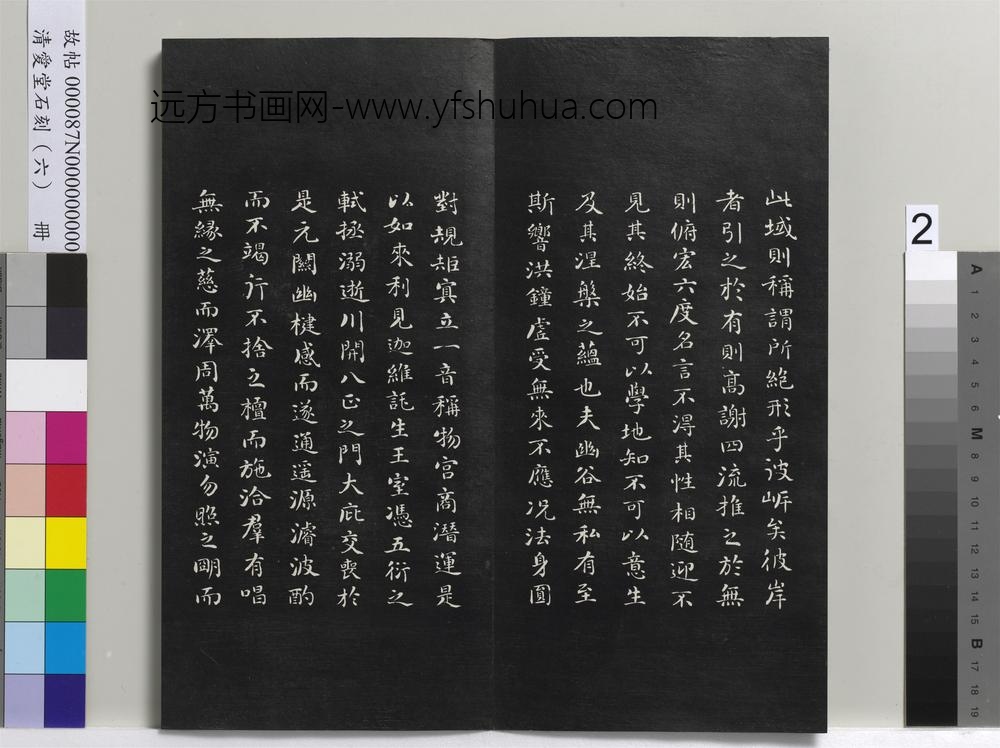 故帖 000087N000000000
清愛堂石刻（六） 冊
远方书画网-www.yfshuhua.com
此域則稱謂所絶形乎彼岸矣彼岸
者引之於有則高謝四流推之於無
則俯宏六度名言不得其性相隨迎不
見其終始不可以學地知不可以意生
及其涅槃之蘊也夫幽谷無私有至
斯響洪鐘虛受無來不應况法身圓
對規矩寘立一音稱物宫商潛運是
以如來利見迦維託生王室憑五衍之
軾拯溺逝川開八正之門大庇交喪於
是元關幽楗感而遂通遥源濬波酌
而不竭行不捨之檀而施洽羣有唱
無緣之慈而澤周萬物演勿照之明而
2
A
1
2
3
4
5
6
M
8
9
10
11
12
13
14
15
B
17
18
19